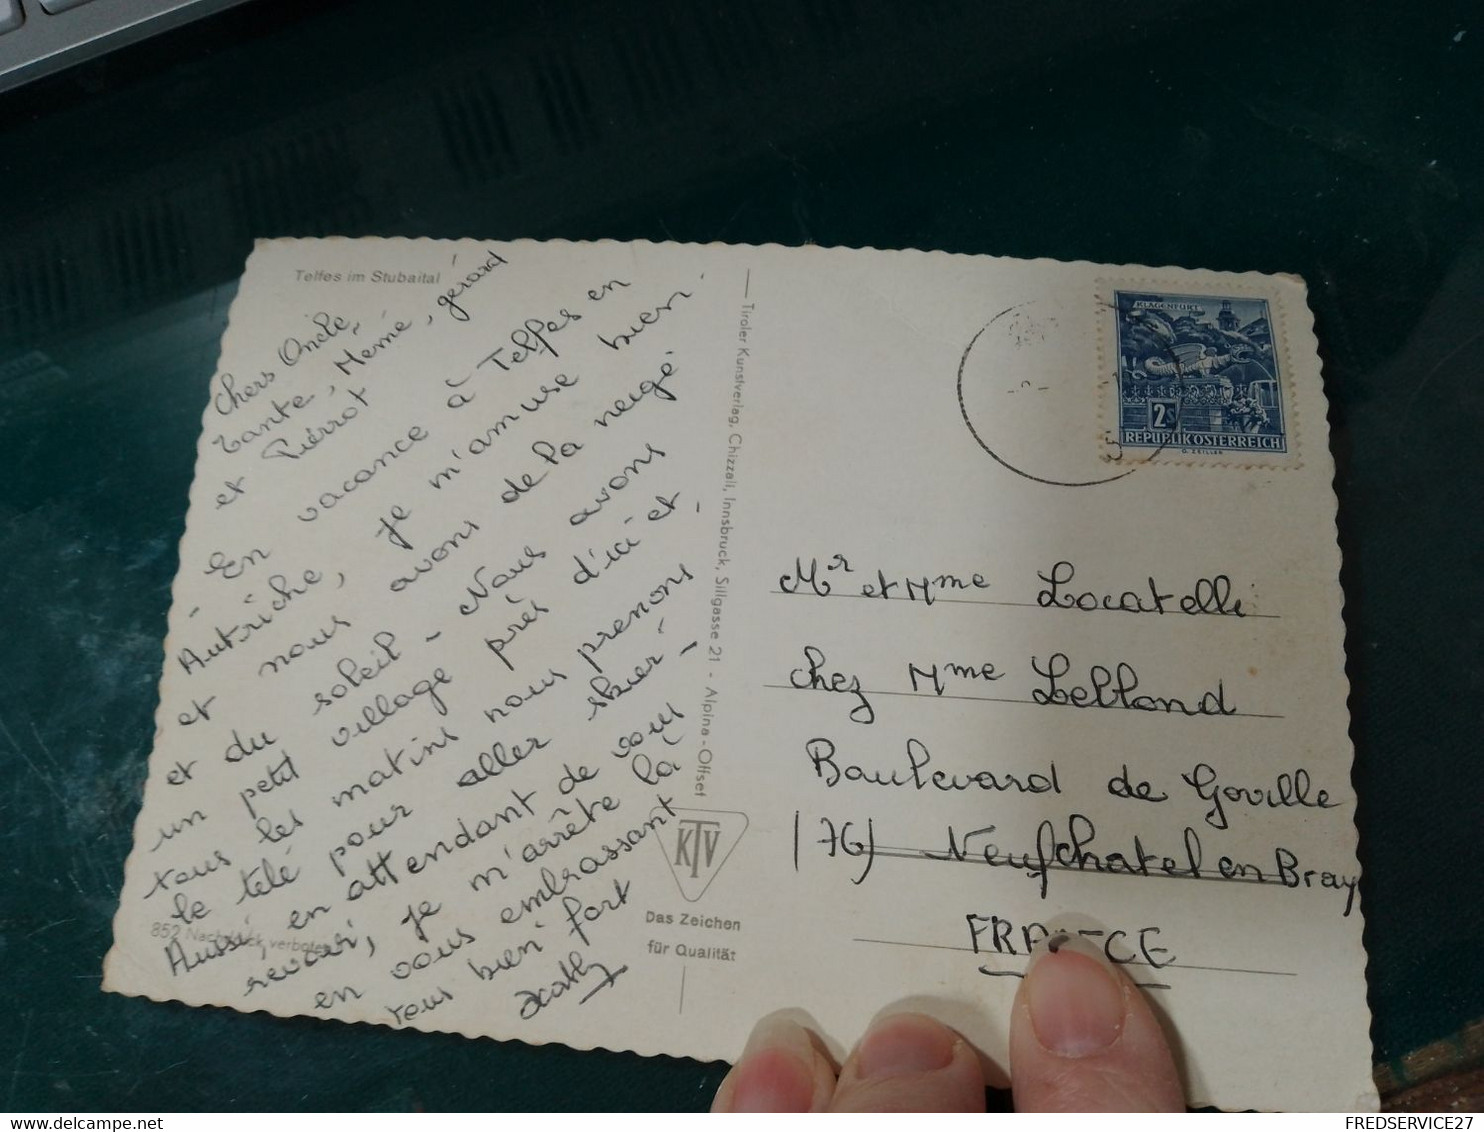 Telfes im Stubaital
Chers Oncle,
tante, Mémé, gérard
et Pierrot
- En vacance à Telfes en
Autriche, je m'amuse bien.
et nous avons de la neige
et du soleil - Nous avons
un petit village près d'ici et
tous les matins nous prenons -
le télé pour aller skier -
Aussi, en attendant de vous -
revoir, je m'arrête là
en vous embrassant
tous bien fort
852 Nachdruck verboten
Tiroler Kunstverlag, Chizzali, Innsbruck, Sillgasse 21 - Alpina-Offset
KTV
Das Zeichen
für Qualität
KLAGENFURT
2s
REPUBLIK ÖSTERREICH
G. ZEILLER
Mr et Mme Locatelli
chez Mme Leblond
Boulevard de Goville
(76) Neufchatel en Bray
FRANCE
FREDSERVICE27